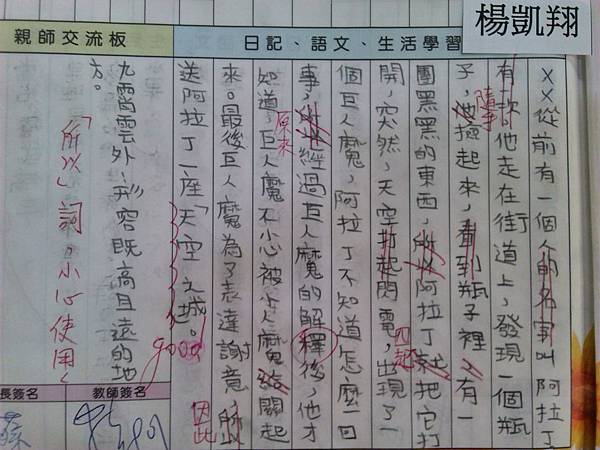 楊凱翔
日記、語文、生活學習
XX從前有一個人的名字叫阿拉丁
有一次他走在街道上,發現一個瓶
隨手
子,他撿起來,看到瓶子裡,有一
團黑黑的東西,所以阿拉丁就把它打
開,突然,天空打起閃電,出現了一
四起
個巨人魔,阿拉丁不知道怎麼回
事,所以經過巨人魔的解釋後,他才
原來
知道,巨人魔不小心被小人魔給關起
來。最後巨人魔為了表達謝意,所以
因此
送阿拉丁一座「天空之城。
good
親師交流板
九霄雲外:形容既高且遠的地
方。
「所以」詞。小心使用
教師簽名
長簽名